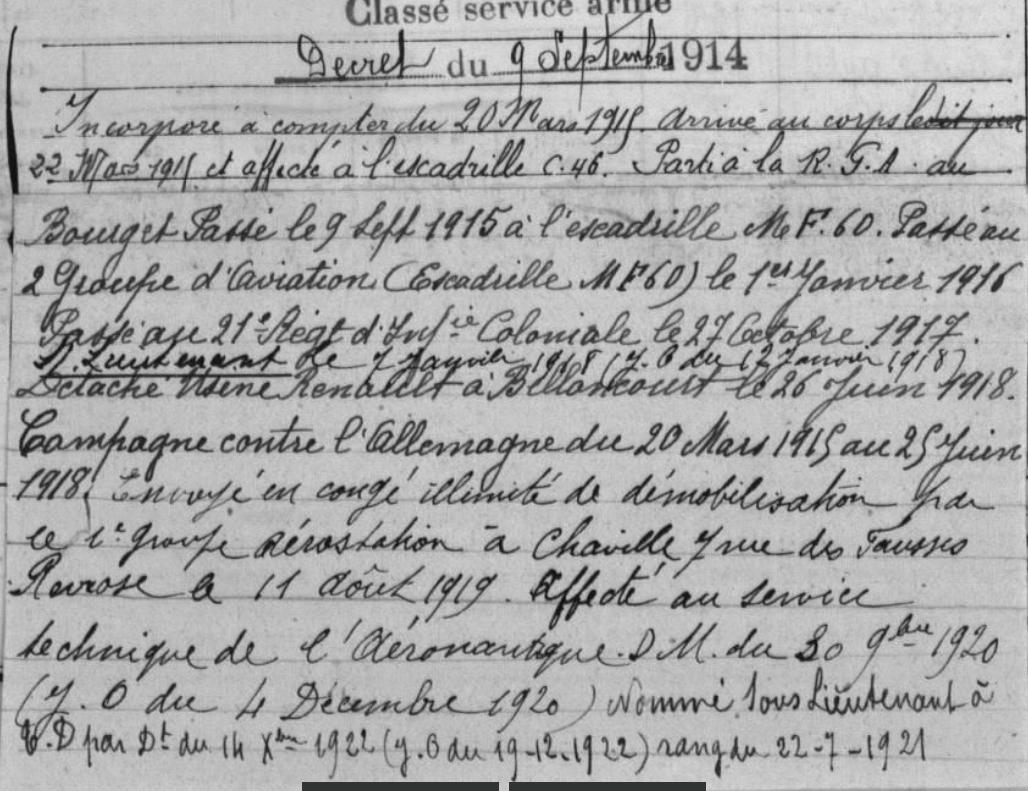 Classé service armé
Decret du 9 Septembre 1914
Incorporé à compter du 20 Mars 1915. arrivé au corps ledit jour
22 Mars 1915 et affecté à l'escadrille C.46. Parti à la R.G.A au
Bourget Passé le 9 Sept 1915 à l'escadrille M.F.60. Passé au
2 Groupe d'Aviation (Escadrille MF60) le 1er Janvier 1916
Passé au 21e Régt d'Infie Coloniale le 27 Octobre 1917.
S. Lieutenant le 7 Janvier 1918 (J.O du 12 Janvier 1918)
Détaché Usine Renault à Billancourt le 26 Juin 1918.
Campagne contre l'Allemagne du 20 Mars 1915 au 25 Juin
1918. Envoyé en congé illimité de démobilisation par
le 1er groupe aérostation à Chaville 7 rue des Fausses
Reposes le 11 Août 1919. Affecté au service
technique de l'Aéronautique. D.M. du 30 9bre 1920
(J.O du 4 Décembre 1920) Nommé Sous Lieutenant à
T.D par Dt du 14 Xbre 1922 (J.O du 19-12-1922) rang du 22-7-1921